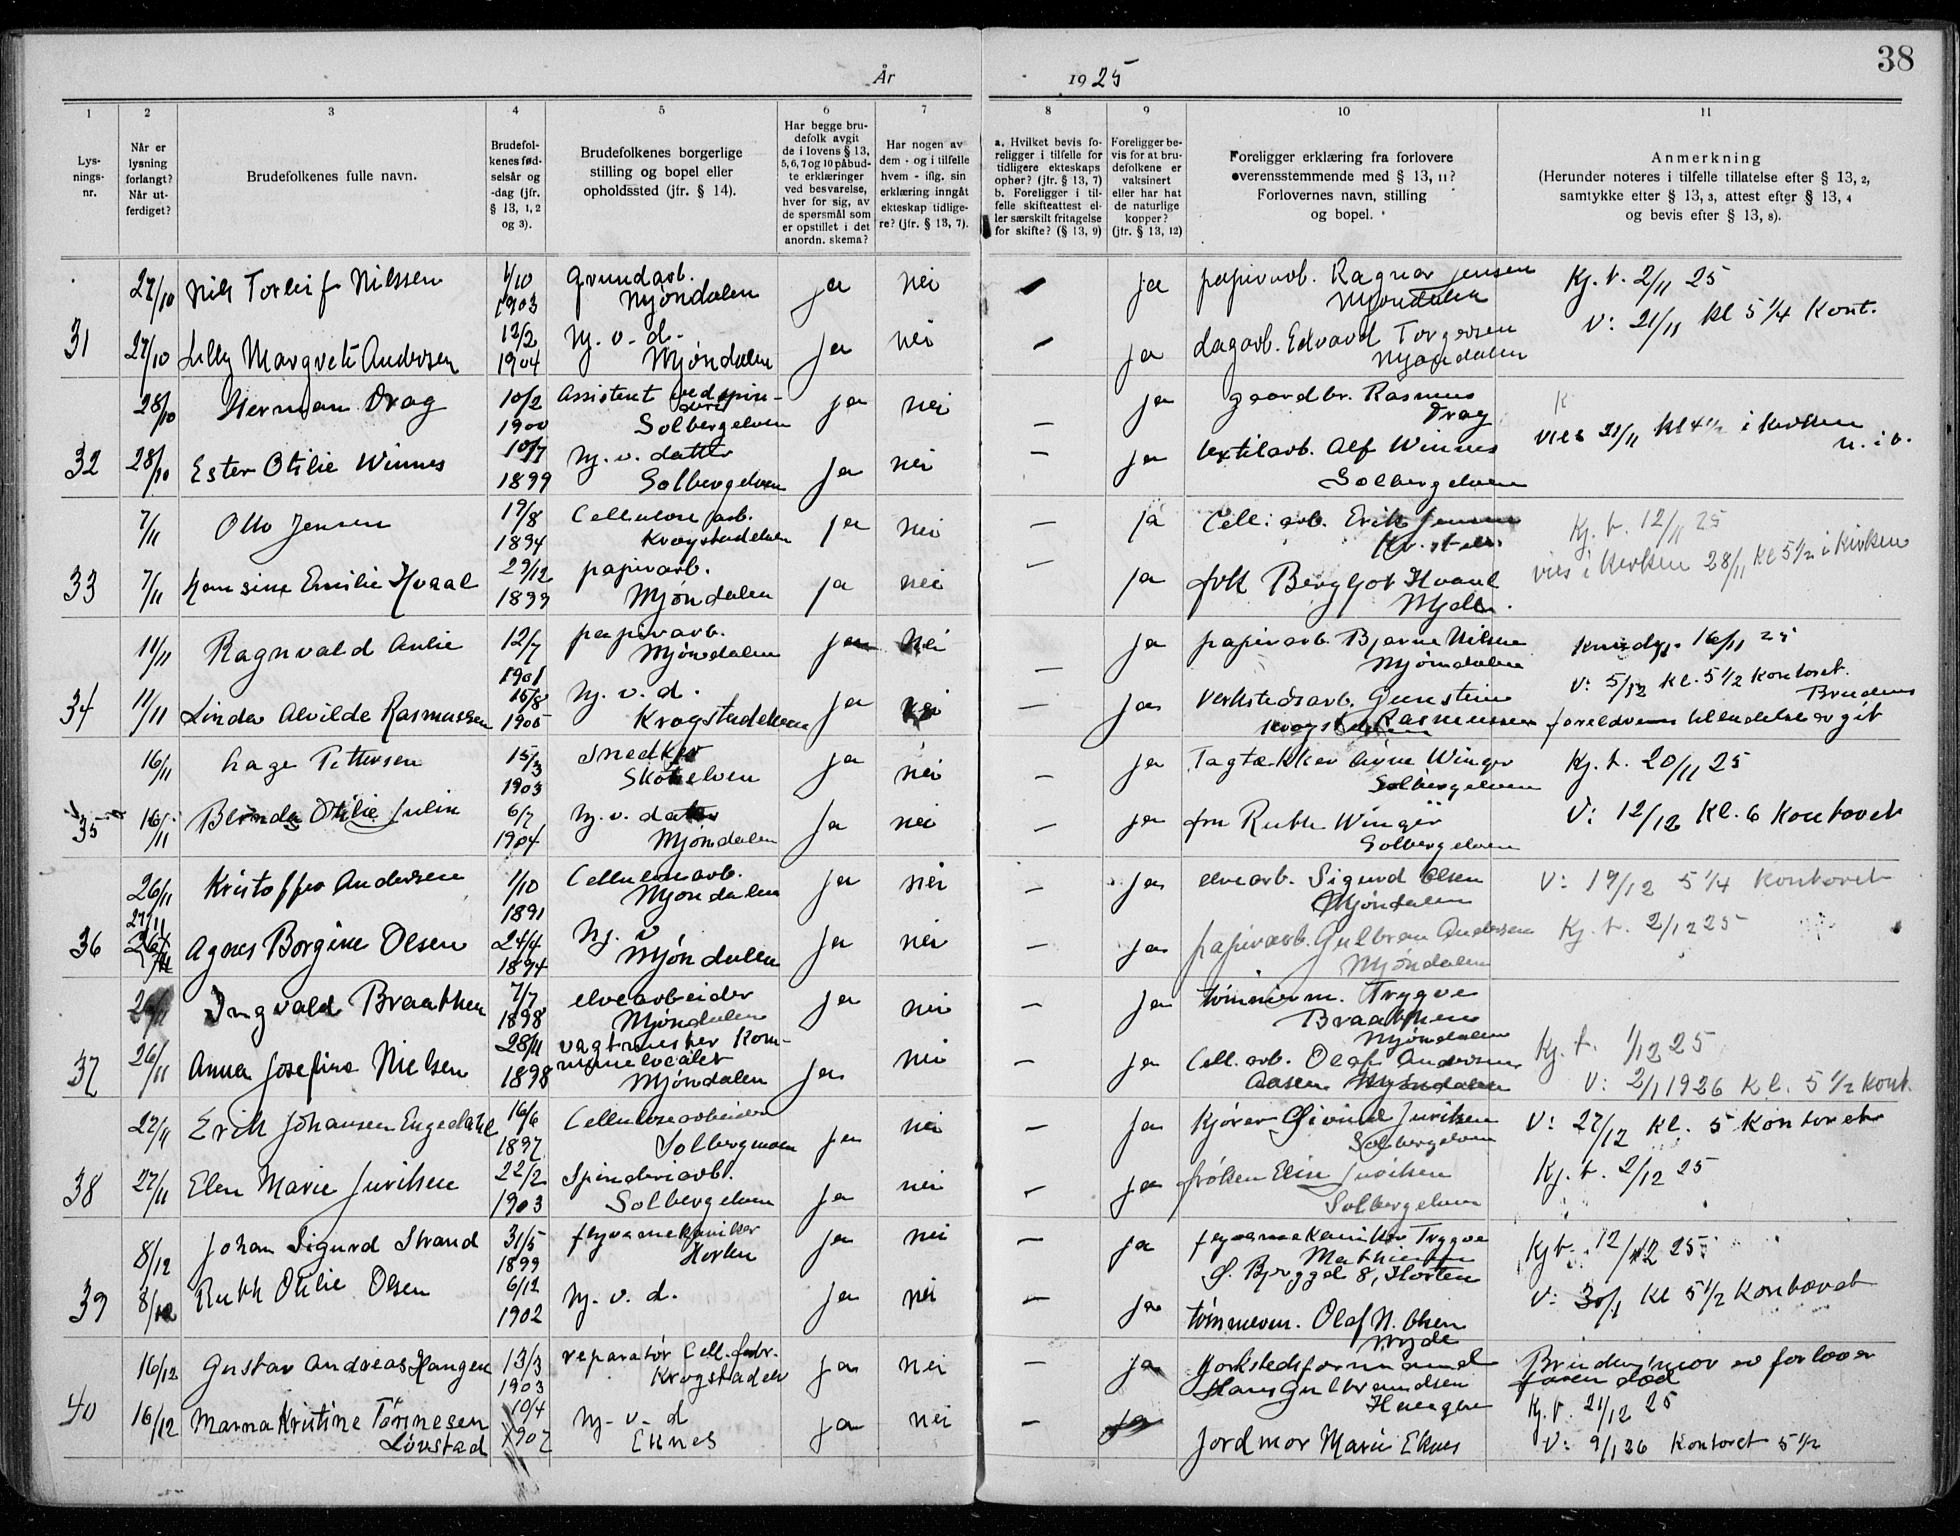 38
År 1925
1 2 3 4 5 6 7 8 9 10 11
Lys-
nings-
nr.
Når er
lysning
forlangt?
Når ut-
ferdiget?
Brudefolkenes fulle navn.
Brudefol-
kenes fød-
selsår og
-dag (jfr.
§ 13, 1, 2
og 3).
Brudefolkenes borgerlige
stilling og bopel eller
opholdssted (jfr. § 14).
Har begge bru-
defolk avgit
de i lovens § 13,
5, 6, 7 og 10 påbud-
te erklæringer
ved besvarelse,
hver for sig, av
de spørsmål som
er opstillet i det
anordn. skema?
Har nogen av
dem - og i tilfelle
hvem - iflg. sin
erklæring inngått
ekteskap tidlige-
re? (jfr. § 13, 7).
a. Hvilket bevis fo-
religger i tilfelle for
tidligere ekteskaps
ophør? (jfr. § 13, 7)
b. Foreligger i til-
felle skifteattest el-
ler særskilt fritagelse
for skifte? (§ 13, 9)
Foreligger be-
vis for at bru-
defolkene er
vaksinert
eller har hat
de naturlige
kopper?
(jfr. § 13, 12)
Foreligger erklæring fra forlovere
overensstemmende med § 13, 11?
Forlovernes navn, stilling
og bopel.
Anmerkning
(Herunder noteres i tilfelle tillatelse efter § 13, 2,
samtykke efter § 13, 3, attest efter § 13, 4
og bevis efter § 13, 8).
27/10 Nils Torleif Nilssen 1/10 1903 grundarb. Mjøndalen ja nei — ja papirarb. Ragnar Jensen Mjøndalen Kj. t. 2/11 25
31 27/10 Lilly Margrete Andersen 12/2 1904 Hj. v. d. Mjøndalen ja nei — ja dagarb. Edvard Torgersen Mjøndalen V: 21/11 kl 5 1/4 Kont.
28/10 Herman Drag 10/2 1900 Assistent ved spin-deri Solbergelven ja nei — ja gaardbr. Rasmus Drag
32 28/10 Ester Otilie Winnes 10/7 1899 Hj. v. datter Solbergelven ja nei — ja textilarb. Alf Winnes Solbergelven vies 21/11 kl 4 1/2 i kirken
7/11 Otto Jensen 19/8 1894 Cellulosearb. Krogstadelven ja nei — ja Cell. arb. Erik Jensen Kr. st. elv. Kj. t. 12/11 25
33 7/11 Hansine Emilie Hvaal 29/12 1899 papirarb. Mjøndalen ja nei — ja frk Bergljot Hvaal Mjdln. vies i kirken 28/11 kl 5 1/2 i kirken
11/11 Ragnvald Aulie 12/7 1901 papirarb. Mjøndalen ja nei — ja papirarb. Bjarne Nilsen Mjøndalen 16/11 25
34 11/11 Linda Alvilde Rasmussen 15/8 1905 Hj. v. d. Krogstadelven ja nei — ja Verkstedsarb. Gunstein Rasmussen V: 5/12 kl. 5 1/2 kontoret. Brudens foreldrenes tilladelse avgit
16/11 Lage Pettersen 15/3 1903 Snedker Skotselven ja nei — ja Tagtækker Arne Winger Solbergelven Kj. t. 20/11 25
35 16/11 Blenda Otilie Julin 6/7 1904 Hj. v. datter Mjøndalen ja nei — ja fru Ruth Winger Solbergelven V: 12/12 kl. 6 kontoret
26/11 Kristoffer Andersen 1/10 1891 Cellulosearb. Mjøndalen ja nei — ja elvearb. Sigurd Olsen Mjøndalen V: 19/12 5 1/4 kontoret
36 27/11 Agnes Borgine Olsen 24/4 1894 Hj. v Mjøndalen ja nei — ja papirarb. Gulbran Andersen Mjøndalen Kj. t. 2/12 25
26/11 Ingvald Braathen 7/7 1898 elvearbeider Mjøndalen ja nei — ja tømmerm. Trygve Braathen Mjøndalen
37 26/11 Anna Josefine Nielsen 28/11 1898 vagtmester Kom-munelocalet Mjøndalen ja nei — ja Cell. arb. Olaf Andersen Aasen Mjøndalen Kj. t. 1/12 25 V: 2/1 1926 kl. 5 1/2 kont.
27/11 Erik Johansen Engedahl 16/6 1897 Cellulosearbeider Solbergmoen ja nei — ja Kjører Øivind Juriksen Solbergelven V: 27/12 kl. 5 kontoret
38 27/11 Elen Marie Juriksen 22/2 1903 Spinderiarb. Solbergelven ja nei — ja frøken Elise Juriksen Solbergelven Kj. t. 2/12 25
8/12 Johan Sigurd Strand 31/5 1899 flyvemekaniker Horten ja nei — ja flyvemekaniker Trygve Mathiesen Ø. Bryggegt 8, Horten Kj t. 12/12 25
39 8/12 Ruth Otilie Olsen 6/12 1902 Hj. v. d. ja nei — ja tømmerm. Olaf N. Olsen V: 30/1 kl 5 1/2 kontoret
16/12 Gustav Andreas Haugen 13/3 1903 reparatør Cell. fabr. Krogstadelv ja nei — ja Verkstedsformand Hans Gulbrandsen Haugen Brudens mor er forlover faren død
40 16/12 Marna Kristine Tørrnesen Løvstad 10/4 1907 Hj. v. d Eknes ja nei — ja Jordmor Marie Eknes Kj. t. 21/12 25 V: 9/1 26 kontoret 5 1/2